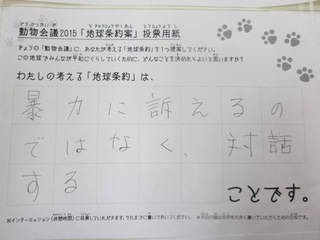 動物会議2015「地球条約案」投票用紙
きょうの「動物会議」に、あなたが考える「地球条約」を1つ提案してください。
この地球でみんなが平和にくらしていくために、どんなことを決めたらよいと思いますか?
わたしの考える「地球条約」は、
暴力に訴えるの
ではなく、対話
する
ことです。
※インターミッション(休憩時間)に投票していただきます。それまでに書いておいてください。